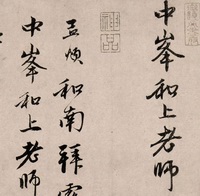 中峯和上老师
孟頫和南拜
中峯和上老师